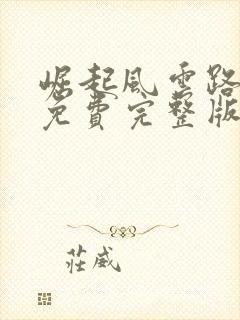 崛起風雲路
免費完整版
莊威